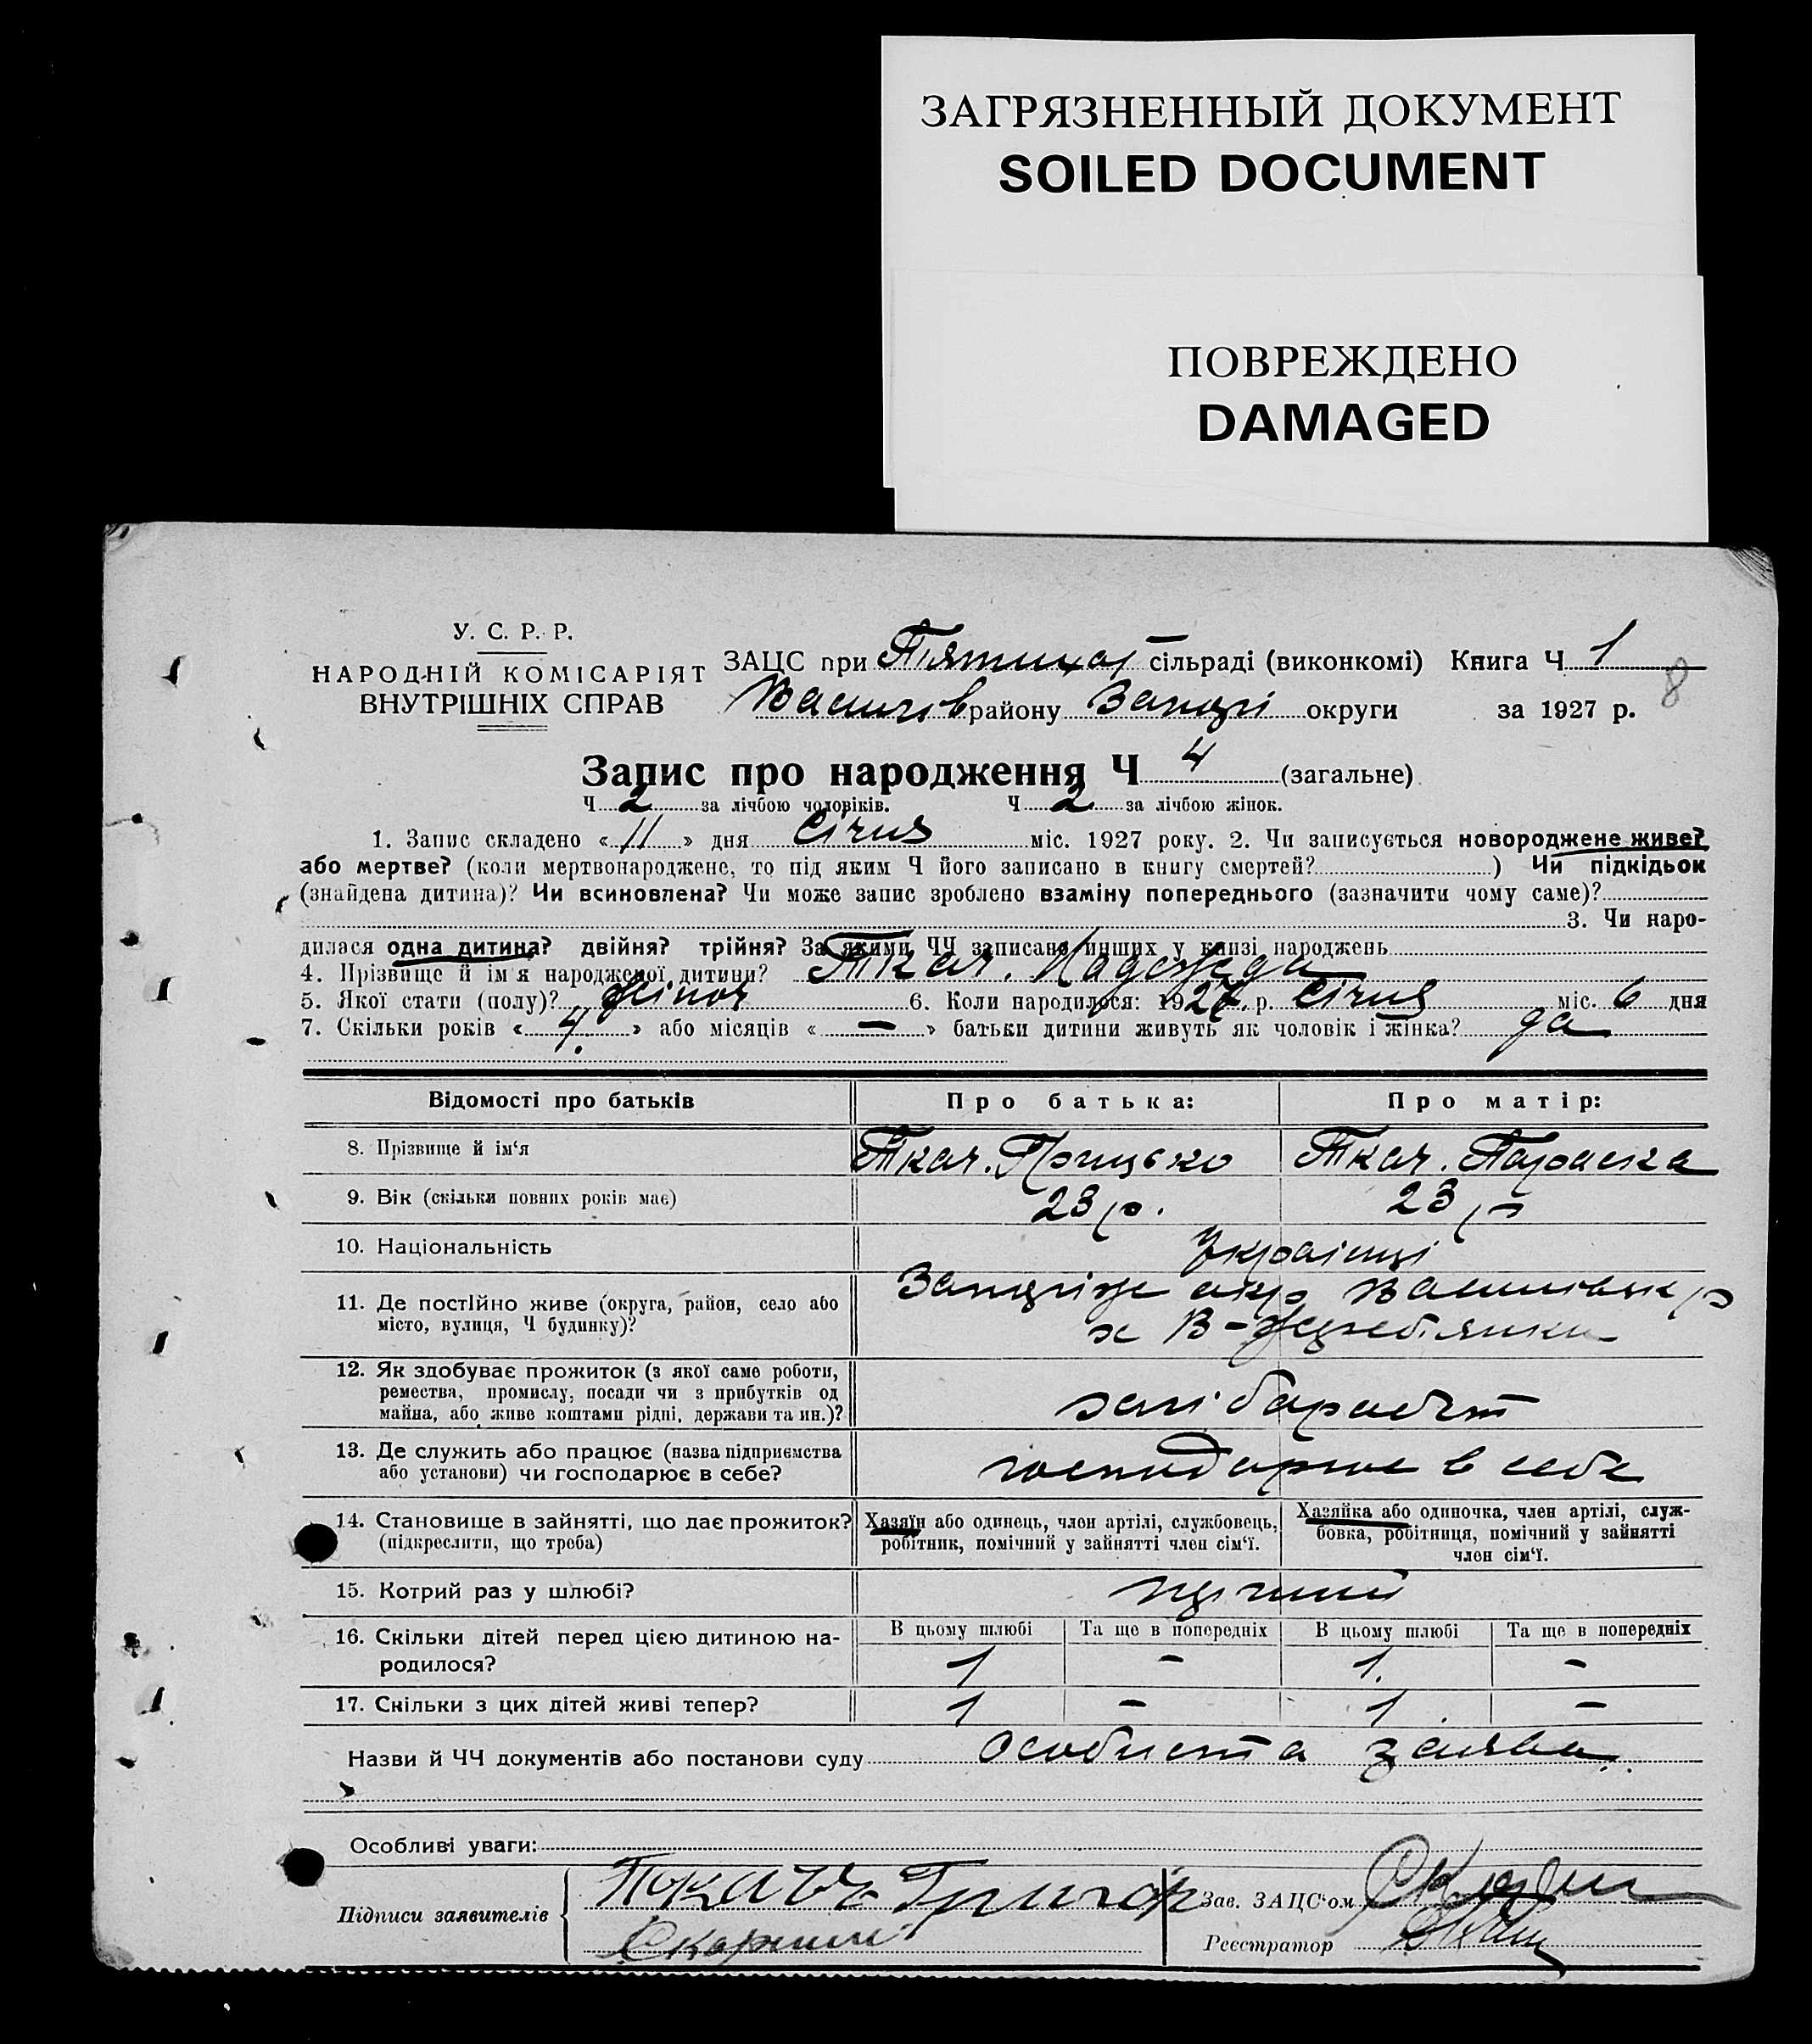 ЗАГРЯЗНЕННЫЙ ДОКУМЕНТ
SOILED DOCUMENT
ПОВРЕЖДЕНО
DAMAGED
У. С. Р. Р.
НАРОДНІЙ КОМІСАРІЯТ
ВНУТРІШНІХ СПРАВ
ЗАЦС при Пятихат сільраді (виконкомі) Книга Ч 1
8
району округи за 1927 р.
Запис про народження Ч 4 (загальне)
Ч 2 за лічбою чоловіків. Ч 2 за лічбою жінок.
1. Запис складено «11» дня Січня міс. 1927 року. 2. Чи записується новороджене живе?
або мертве? (коли мертвонароджене, то під яким Ч його записано в книгу смертей? ) Чи підкідьок
(знайдена дитина)? Чи всиновлена? Чи може запис зроблено взаміну попереднього (зазначити чому саме)?
3. Чи наро-
дилася одна дитина? двійня? трійня? За якими ЧЧ записано инших у книзі народжень
4. Прізвище й ім'я народженої дитини? Ткач. Надежда
5. Якої стати (полу)? жіноч 6. Коли народилося: 1927 р. Січня міс. 6 дня
7. Скільки років « 4. » або місяців « — » батьки дитини живуть як чоловік і жінка? да
Відомості про батьків Про батька: Про матір:
8. Прізвище й ім'я Ткач. Грицько Ткач. Параска
9. Вік (скільки повних років має) 23 р. 23 р
10. Національність Українці
11. Де постійно живе (округа, район, село або
місто, вулиця, Ч будинку)?
12. Як здобуває прожиток (з якої саме роботи,
ремества, промислу, посади чи з прибутків од
майна, або живе коштами рідні, держави та ин.)?
13. Де служить або працює (назва підприємства
або установи) чи господарює в себе? господарює в себе
14. Становище в зайнятті, що дає прожиток?
(підкреслити, що треба)
Хазяїн або одинець, член артілі, службовець,
робітник, помічний у зайнятті член сім'ї.
Хазяйка або одиночка, член артілі, служ-
бовка, робітниця, помічний у зайнятті
член сім'ї.
15. Котрий раз у шлюбі?
16. Скільки дітей перед цією дитиною на-
родилося?
В цьому шлюбі Та ще в попередніх В цьому шлюбі Та ще в попередніх
1 - 1. -
17. Скільки з цих дітей живі тепер? 1 - 1. -
Назви й ЧЧ документів або постанови суду Особиста заява.
Особливі уваги:
Підписи заявителів
Григор
Зав. ЗАЦС'ом
Реєстратор